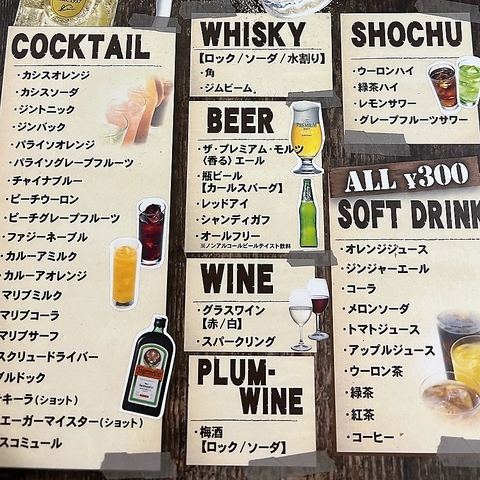 COCKTAIL
・カシスオレンジ
・カシスソーダ
・ジントニック
・ジンバック
・パライソオレンジ
・パライソグレープフルーツ
・チャイナブルー
・ピーチウーロン
・ピーチグレープフルーツ
・ファジーネーブル
・カルーアミルク
・カルーアオレンジ
マリブミルク
マリブコーラ
マリブサーフ
スクリュードライバー
ブルドック
テキーラ(ショット)
エーガーマイスター(ショット)
スコミュール
WHISKY
【ロック/ソーダ/水割り】
・角
・ジムビーム
BEER
・ザ・プレミアム・モルツ
〈香る〉エール
・瓶ビール
【カールスバーグ】
・レッドアイ
・シャンディガフ
・オールフリー
※ノンアルコールビールテイスト飲料
WINE
・グラスワイン
【赤/白】
・スパークリング
PLUM-
WINE
・梅酒
【ロック/ソーダ】
SHOCHU
・ウーロンハイ
・緑茶ハイ
・レモンサワー
・グレープフルーツサワー
ALL ¥300
SOFT DRINK
・オレンジジュース
・ジンジャーエール
・コーラ
・メロンソーダ
・トマトジュース
・アップルジュース
・ウーロン茶
・緑茶
・紅茶
・コーヒー